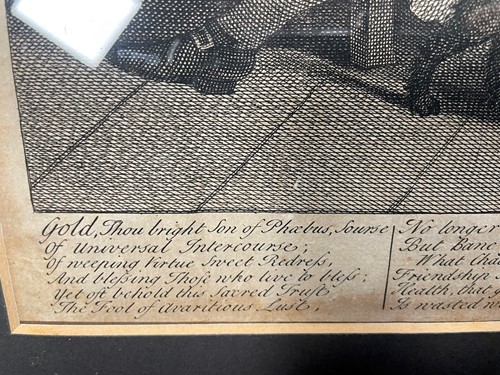 Gold, Thou bright Son of Phœbus, Sourse
Of Universal Intercourse;
Of weeping Virtue Sweet Redress,
And blessing Those who live to bless:
Yet oft behold this Sacred Trust
The Tool of Avaritious Lust,
No longer
But Bane
What
Friendship
Health, that
Is wasted